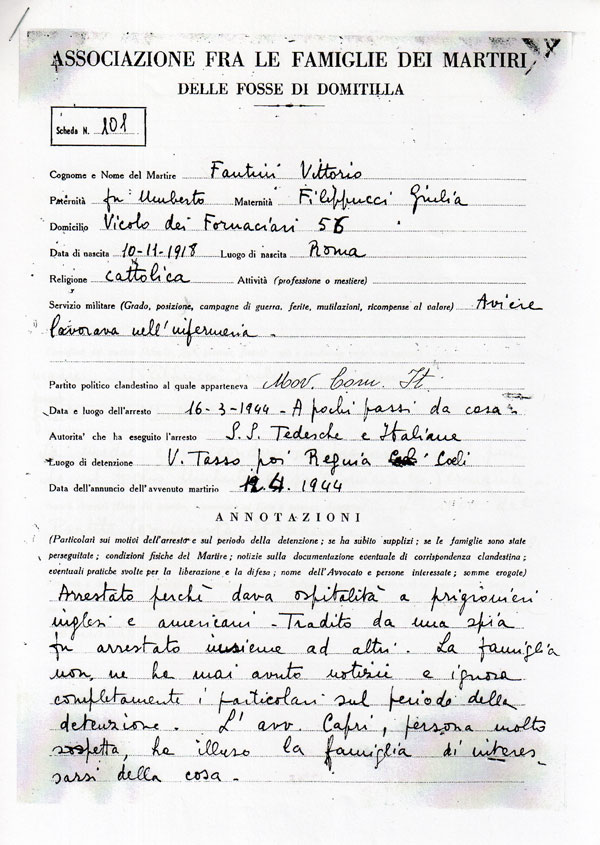 ASSOCIAZIONE FRA LE FAMIGLIE DEI MARTIRI
DELLE FOSSE DI DOMITILLA
Scheda N. 101
Cognome e Nome del Martire Fantini Vittorio
Paternità fu Umberto Maternità Filippucci Giulia
Domicilio Vicolo dei Fornaciari 56
Data di nascita 10-11-1918 Luogo di nascita Roma
Religione cattolica Attività (professione o mestiere)
Servizio militare (Grado, posizione, campagne di guerra, ferite, mutilazioni, ricompense al valore) Aviere
lavorava nell'infermeria -
Partito politico clandestino al quale apparteneva Mov. Com. It.
Data e luogo dell'arresto 16-3-1944 - A pochi passi da casa -
Autorità che ha eseguito l'arresto S.S. Tedesche e Italiane
Luogo di detenzione V. Tasso poi Regina Coeli
Data dell'annuncio dell'avvenuto martirio 4. 1944
ANNOTAZIONI
(Particolari sui motivi dell'arresto e sul periodo della detenzione; se ha subito supplizi; se le famiglie sono state
perseguitate; condizioni fisiche del Martire; notizie sulla documentazione eventuale di corrispondenza clandestina;
eventuali pratiche svolte per la liberazione e la difesa; nome dell'Avvocato e persone interessate; somme erogate)
Arrestato perchè dava ospitalità a prigionieri
inglesi e americani - Tradito da una spia
fu arrestato insieme ad altri. La famiglia
non ne ha mai avuto notizie e ignora
completamente i particolari sul periodo della
detenzione. L'avv. Capri, persona molto
sospetta, ha illuso la famiglia di interes-
sarsi della cosa -